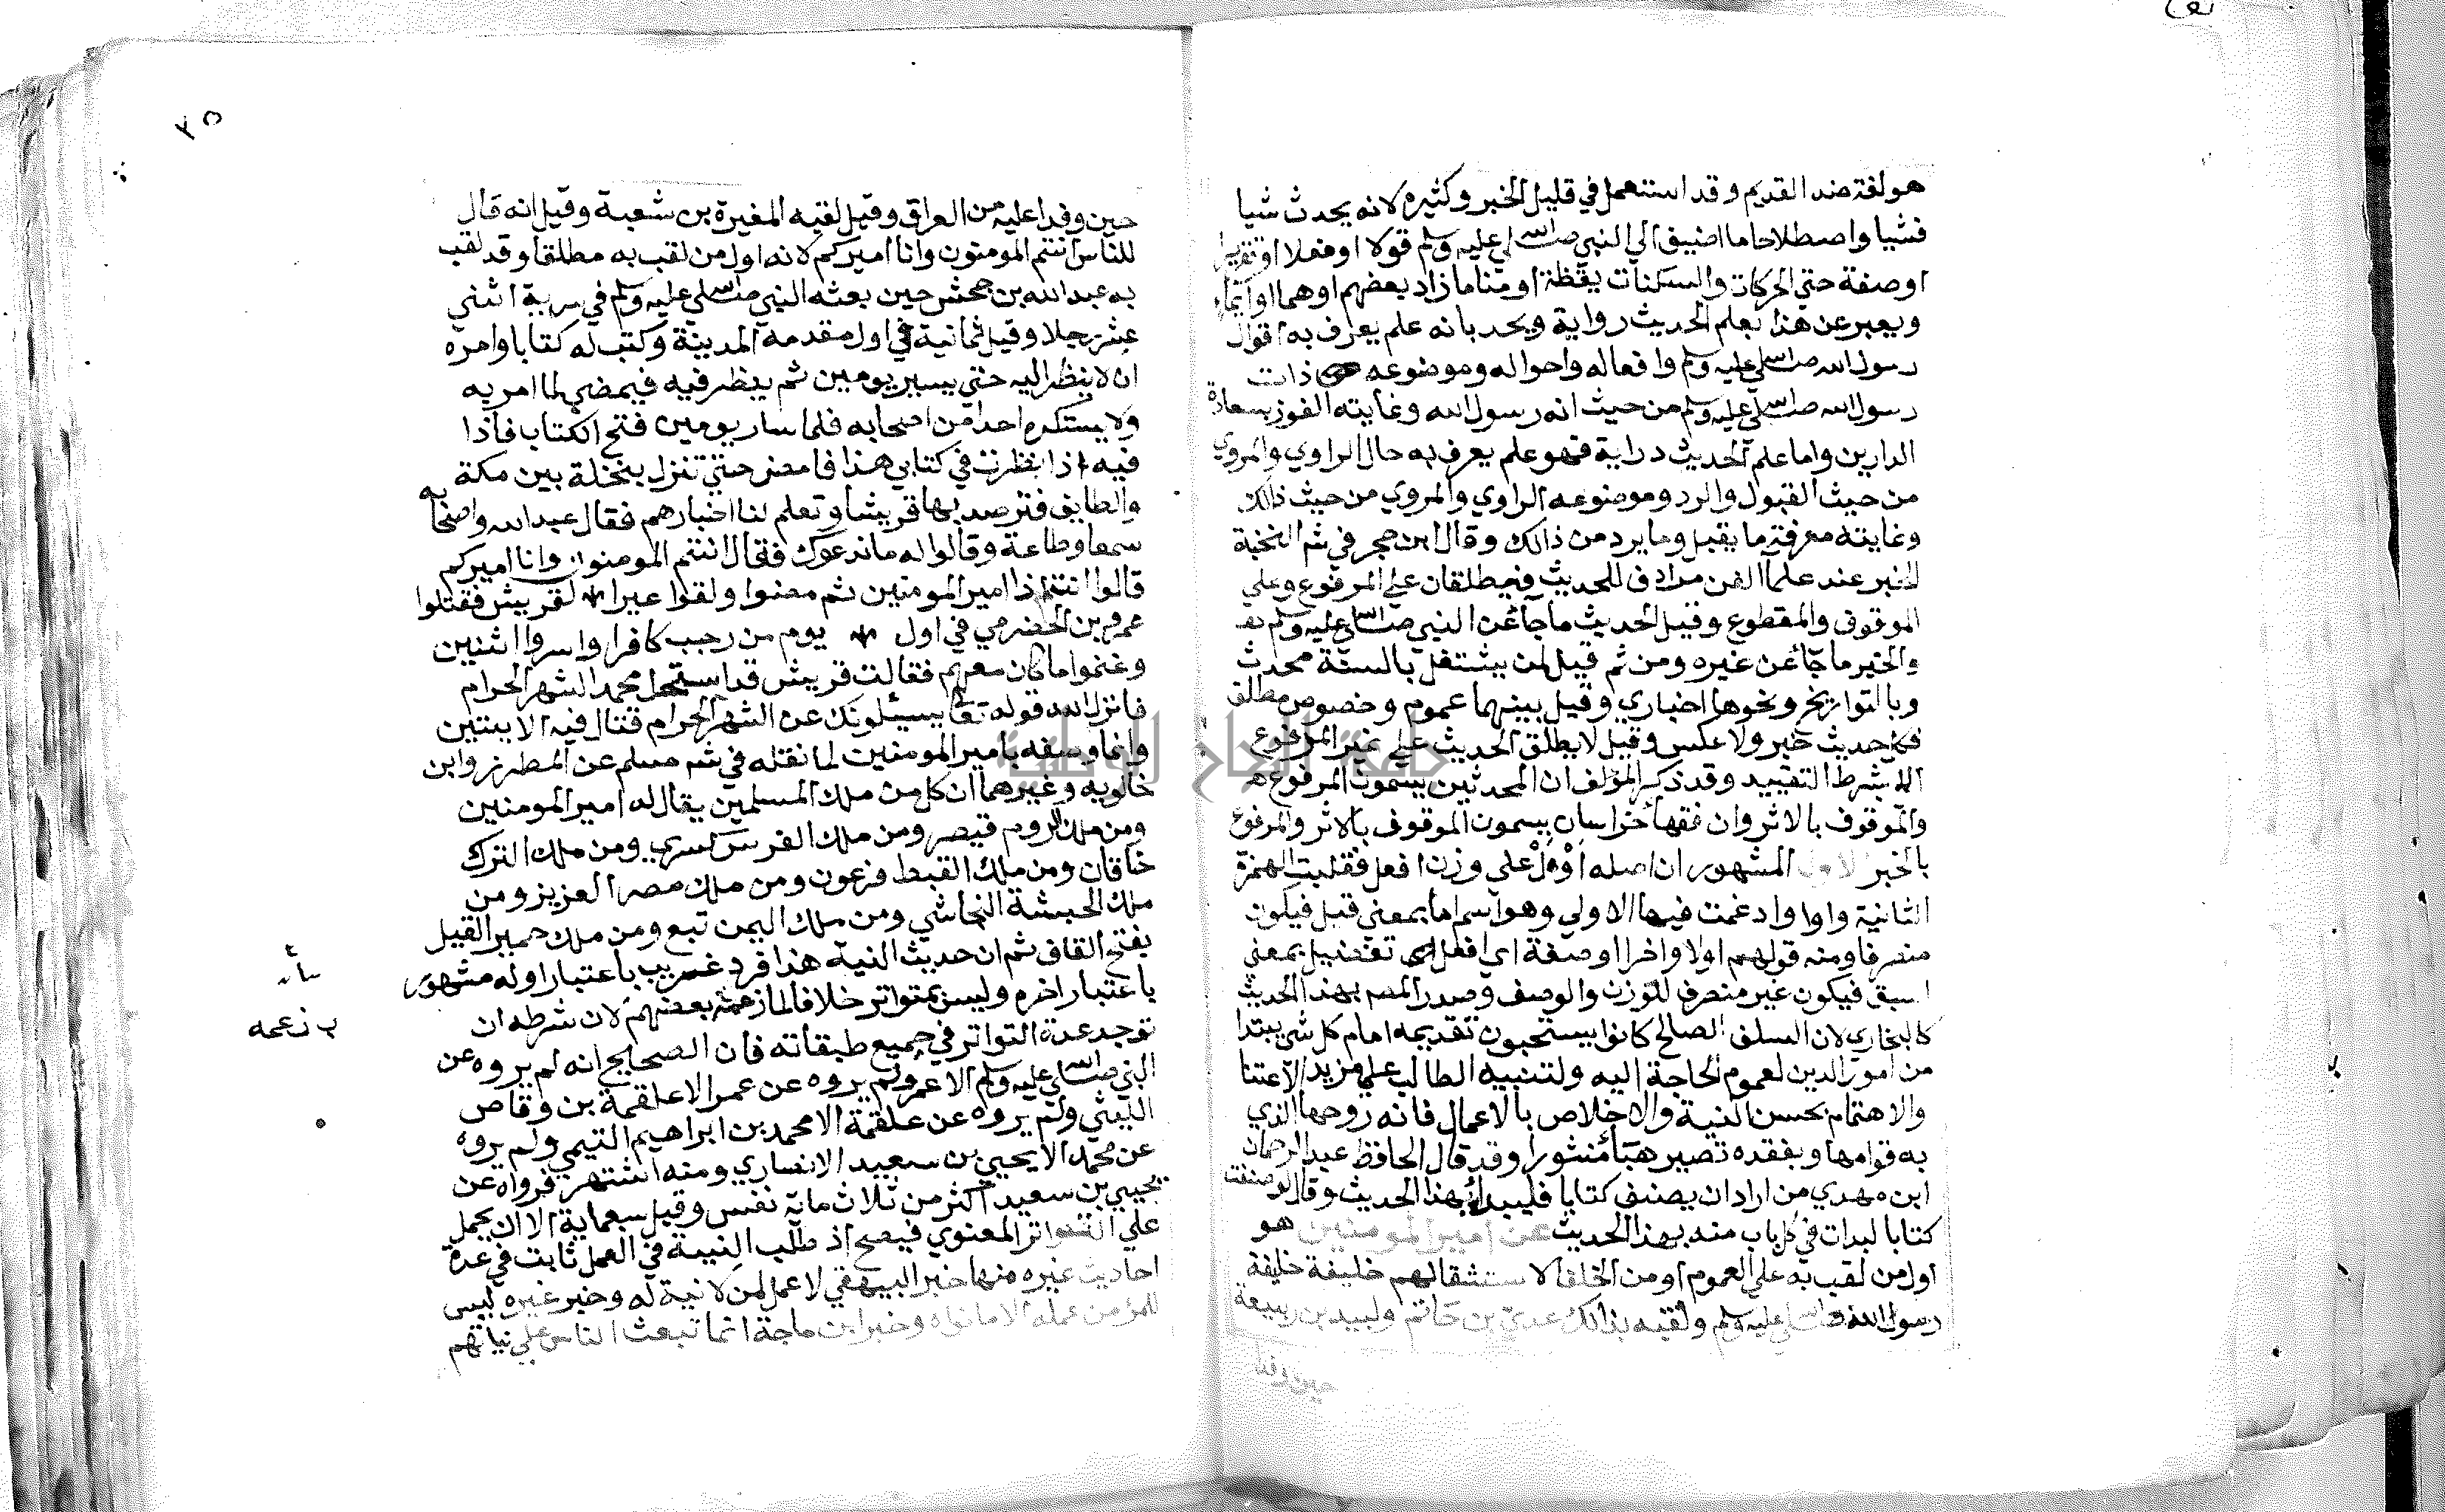 هو لغة ضد القديم وقد استعمل في قليل الخبر وكثيره لانه يحدث شيا
فشيا واصطلاحا ما اضيف الي النبي صلى الله عليه وسلم قولا او فعلا او تقريرا
او صفة حتي الحركات والسكنات يقظة او مناما زاد بعضهم او هما او ايماء
ويعبر عن هذا بعلم الحديث رواية ويحد بانه علم يعرف به اقوال
رسول الله صلى الله عليه وسلم وافعاله واحواله وموضوعه ذات
رسول الله صلى الله عليه وسلم من حيث انه رسول الله وغايته الفوز بسعادة
الدارين واما علم الحديث دراية فهو علم يعرف به حال الراوي والمروي
من حيث القبول والرد وموضوعه الراوي والمروي من حيث ذالك
وغايته معرفة ما يقبل وما يرد من ذالك وقال ابن حجر في شم النخبة
الخبر عند علمآ الفن مرادف للحديث فيطلقان علي المرفوع وعلي
الموقوف والمقطوع وقيل الحديث ما جآ عن النبي صلى الله عليه وسلم
والخبر ما جآ عن غيره ومن ثم قيل لمن يشتغل بالسنة محدث
وبالتواريخ ونحوها اخباري وقيل بينهما عموم وخصوص مطلق
فكل حديث خبر ولا عكس وقيل لا يطلق الحديث علي غير المرفوع
الا بشرط التقييد وقد ذكر المؤلف ان المحدثين يسمون المرفوع
والموقوف بالاثر وان فقهآ خراسان يسمون الموقوف بالاثر والمرفوع
بالخبر الاول المشهور ان اصله اوءل علي وزن افعل فقلبت الهمزة
الثانية واوا وادغمت فيها الاولي وهو اسم اما بمعني قبل فيكون
منصرفا ومنه قولهم اولا واخرا او صفة اي افعل تفضيل بمعني
اسبق فيكون غير منصرف للوزن والوصف وصدر المصم بهذا الحديث
كالبخاري لان السلف الصالح كانوا يستحبون تقديمه امام كل شي يبتدا
من امور الدين لعموم الحاجة اليه ولتنبيه الطالب علي مزيد الاعتنا
والاهتمام بحسن النية والاخلاص بالاعمال فانه روحها الذي
به قوامها وبفقده تصير هبآ منثورا وقد قال الحافظ عبد الرحمان
ابن مهدي من اراد ان يصنف كتابا فليبدا بهذا الحديث وقال لو صنفت
كتابا لبدات في كل باب منه بهذا الحديث عن امير المومنين هو
اول من لقب به علي العموم او من الخلفا لاستثقالهم خليفة خليفة
رسول الله صلى الله عليه وسلم ولقبه بذالك عدي بن حاتم ولبيد بن ربيعة
حين وفدا
٣٥
حين وفدا عليه من العراق وقيل لقبه المغيرة بن شعبة وقيل انه قال
للناس انتم المومنون وانا اميركم لانه اول من لقب به مطلقا وقد لقب
به عبد الله بن جحش حين بعثه النبي صلى الله عليه وسلم في سرية اثني
عشر رجلا وقيل ثمانية في اول مقدمه المدينة وكتب له كتابا وامره
ان لا ينظر اليه حتي يسير يومين ثم ينظر فيه فيمضي لما امر به
ولا يستكره احدا من اصحابه فلما سار يومين فتح الكتاب فاذا
فيه اذا نظرت في كتابي هذا فامض حتي تنزل بنخلة بين مكة
والطايف فترصد بها قريشا وتعلم لنا اخبارهم فقال عبد الله واصحابه
سمعا وطاعة وقالوا له ما ندعوك فقال انتم المومنون وانا اميركم
قالوا انت اذا امير المومنين ثم مضوا ولقوا عيرا لقريش فقتلوا
عمرو بن الحضرمي في اول يوم من رجب كافرا واسروا اثنين
وغنموا ما كان معهم فقالت قريش قد استحل محمد الشهر الحرام
فانزل الله قوله تعالى يسئلونك عن الشهر الحرام قتال فيه الايتين
وانما وصفه بامير المومنين لما نقله في شم مسلم عن المطرز وابن
خالويه وغيرهما ان كل من ملك المسلمين يقال له امير المومنين
ومن ملك الروم قيصر ومن ملك الفرس كسري ومن ملك الترك
خاقان ومن ملك القبط فرعون ومن ملك مصر العزيز ومن
ملك الحبشة النجاشي ومن ملك اليمن تبع ومن ملك حمير القيل
بفتح القاف ثم ان حديث النية هذا فرد غريب باعتبار اوله مشهور
باعتبار اخره وليس بمتواتر خلافا لما زعمه بعضهم لان شرطه ان
توجد عدة التواتر في جميع طبقاته فان الصحايح انه لم يروه عن
النبي صلى الله عليه وسلم الا عمر ولم يروه عن عمر الا علقمة بن وقاص
الليثي ولم يروه عن علقمة الا محمد بن ابراهيم التيمي ولم يروه
عن محمد الا يحيي بن سعيد الانصاري ومنه اشتهر فرواه عن
يحيي بن سعيد اكثر من ثلاث ماية نفس وقيل سبعماية الا ان يحمل
علي التواتر المعنوي فيصح اذ طلب النية في العمل ثابت في عدة
احاديث غيره منها خبر البيهقي لا عمل لمن لا نية له وخبر غيره ليس
للمؤمن من عمله الا ما نواه وخبر ابن ماجة انما تبعث الناس علي نياتهم
ب زعمه